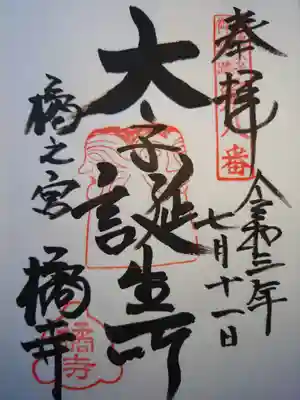 奉拝
八番
令和三年
七月十一日
太子誕生所
橘之宮
橘寺
橘寺